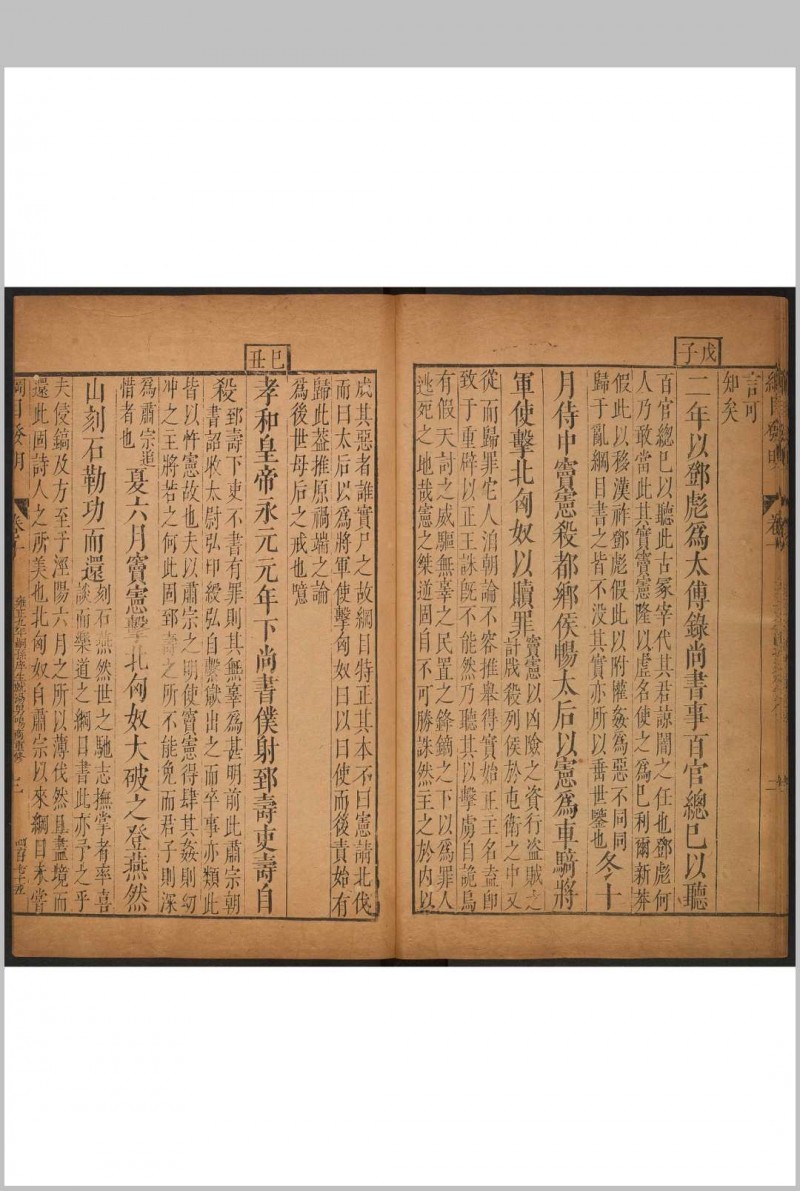 戊子
言可
知矣
二年以鄧彪爲太傅錄尚書事百官總已以聽
百官總已以聽此古冢宰代其君諒闇之任也鄧彪何
人乃敢當此其實竇憲隆以虛名使之爲已利爾新莽
假此以移漢祚鄧彪假此以附權姦爲惡不同同
歸于亂綱目書之皆不没其實亦所以垂世鑒也
冬十
月侍中竇憲殺都鄉侯暢太后以憲爲車騎將
軍使擊北匈奴以贖罪
竇憲以凶險之資行盜賊之
計戕殺列侯於屯衛之中又
從而歸罪它人泊朝論不容推舉得實始正王名盍卽
致于重辟以正王誅旣不能然乃聽其以擊虜自詭烏
有假天討之威驅無辜之民置之鋒鏑之下以爲罪人
逃死之地哉憲之桀逆固自不可勝誅然王之於内以
成其惡者誰實尸之故綱目特正其本不曰憲請北伐
而曰太后以爲將軍使擊匈奴曰以曰使而後責始有
歸此蓋推原禍端之論
爲後世母后之戒也噫
己丑
孝和皇帝永元元年下尚書僕射郅壽吏壽自
殺
郅壽下吏不書有罪則其無辜爲甚明前此肅宗朝
書詔收太尉弘印綬弘自繫獄出之而卒事亦類此
皆以忤竇憲故也夫以肅宗之明使竇憲得肆其姦則幼
冲之主將若之何此固郅壽之所不能免而君子則深
爲肅宗追
惜者也
夏六月竇憲擊北匈奴大破之登燕然
山刻石勒功而還
刻石燕然世之馳志撫掌者率喜
談而樂道之綱目書此亦予之乎
夫侵鎬及方至于涇陽六月之所以薄伐然且盡境而
還此固詩人之所美也北匈奴自肅宗以來綱目未嘗
綱目發明
卷十